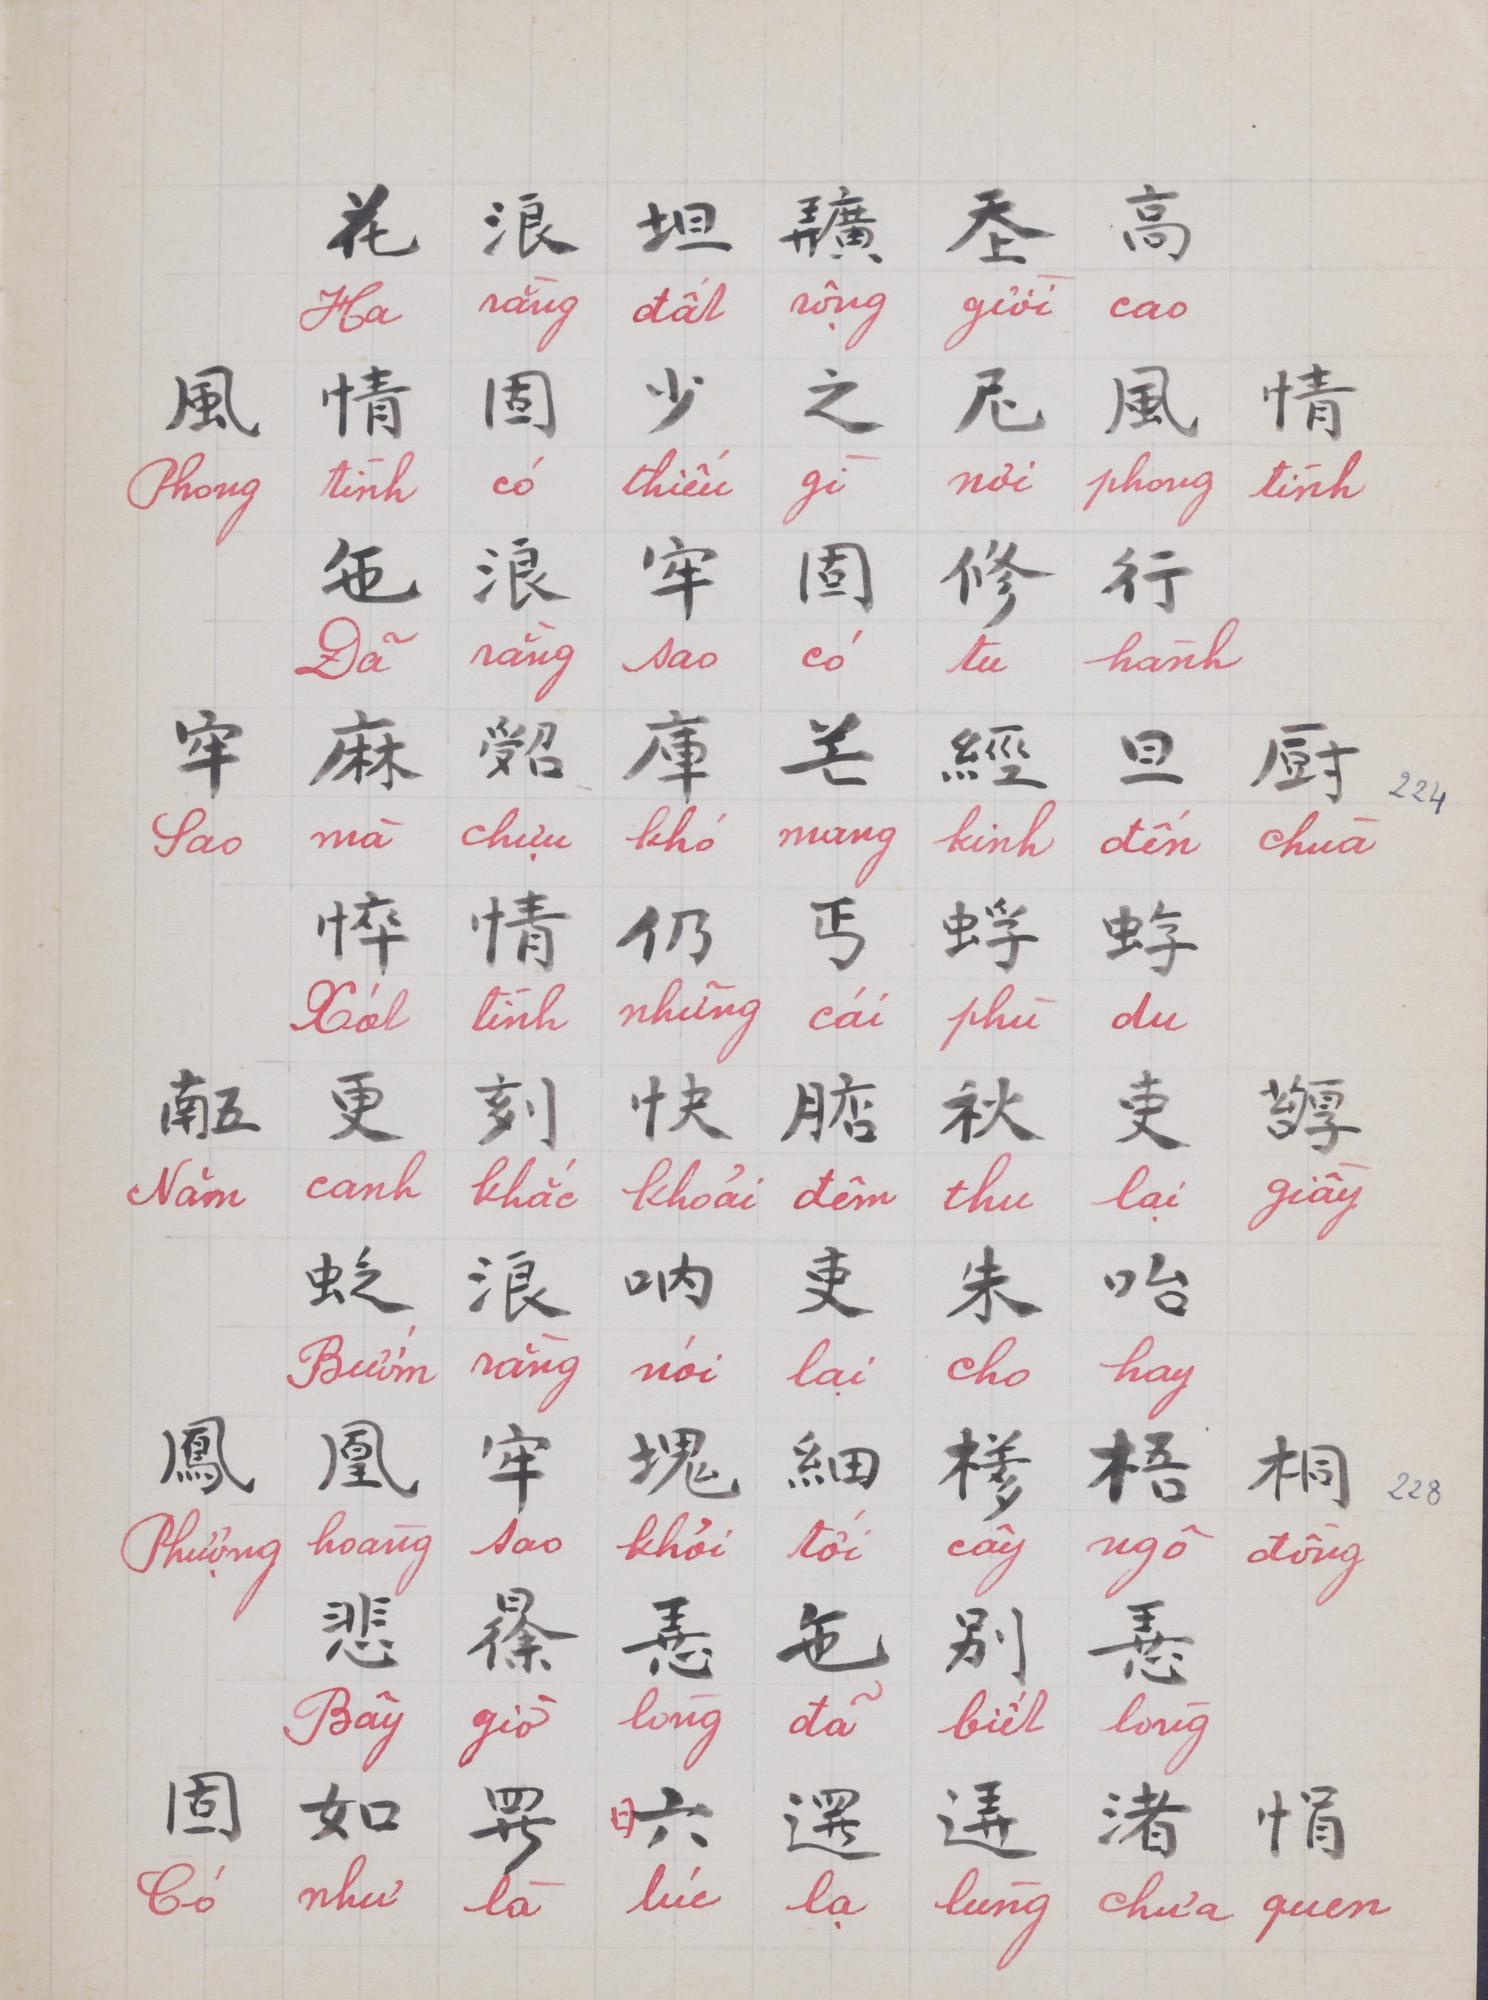 花 浪 坦 𢌌 𡗶 高
Hoa rằng đất rộng giời cao
風 情 固 少 之 尼 風 情
Phong tình có thiếu gì nơi phong tình
㐌 浪 牢 固 修 行
Đã rằng sao có tu hành
牢 麻 𠹾 庫 芒 經 旦 厨 224
Sao mà chịu khó mang kinh đến chùa
悴 情 仍 丐 蜉 蝣
Xót tình những cái phù du
𠄼 更 刻 快 𣎀 秋 吏 𠫅
Năm canh khắc khoải đêm thu lại giầy
𧊉 浪 吶 吏 朱 咍
Bướm rằng nói lại cho hay
鳳 凰 牢 塊 細 𣘃 梧 桐 228
Phượng hoàng sao khỏi tới cây ngô đồng
悲 𣇞 𢚸 㐌 別 𢚸
Bây giờ lòng đã biết lòng
固 如 𱺵 𣅶 邏 𨓡 渚 悁
Có như là lúc lạ lùng chưa quen